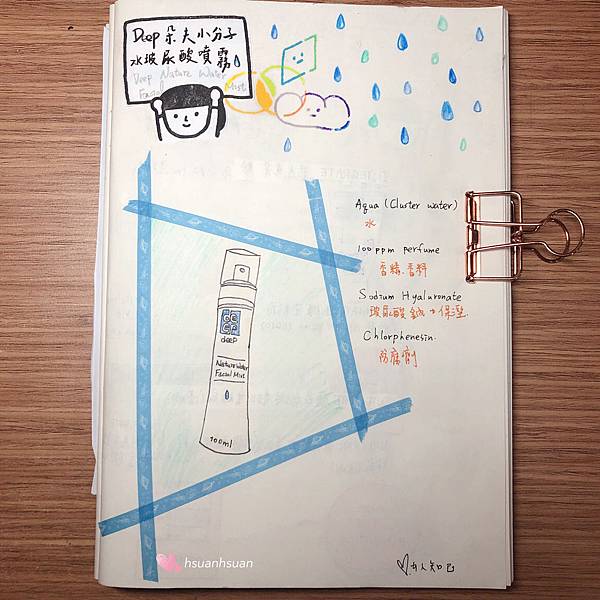 Deep 朵夫小分子
水玻尿酸噴霧
Deep Nature Water
Facial Mist
Aqua (Cluster water)
水
100 ppm perfume
香精.香料
Sodium Hyaluronate
玻尿酸鈉→保溼
Chlorphenesin.
防腐劑
DE
EP
deep
Nature Water
Facial Mist
100ml
hsuanhsuan
女人知己